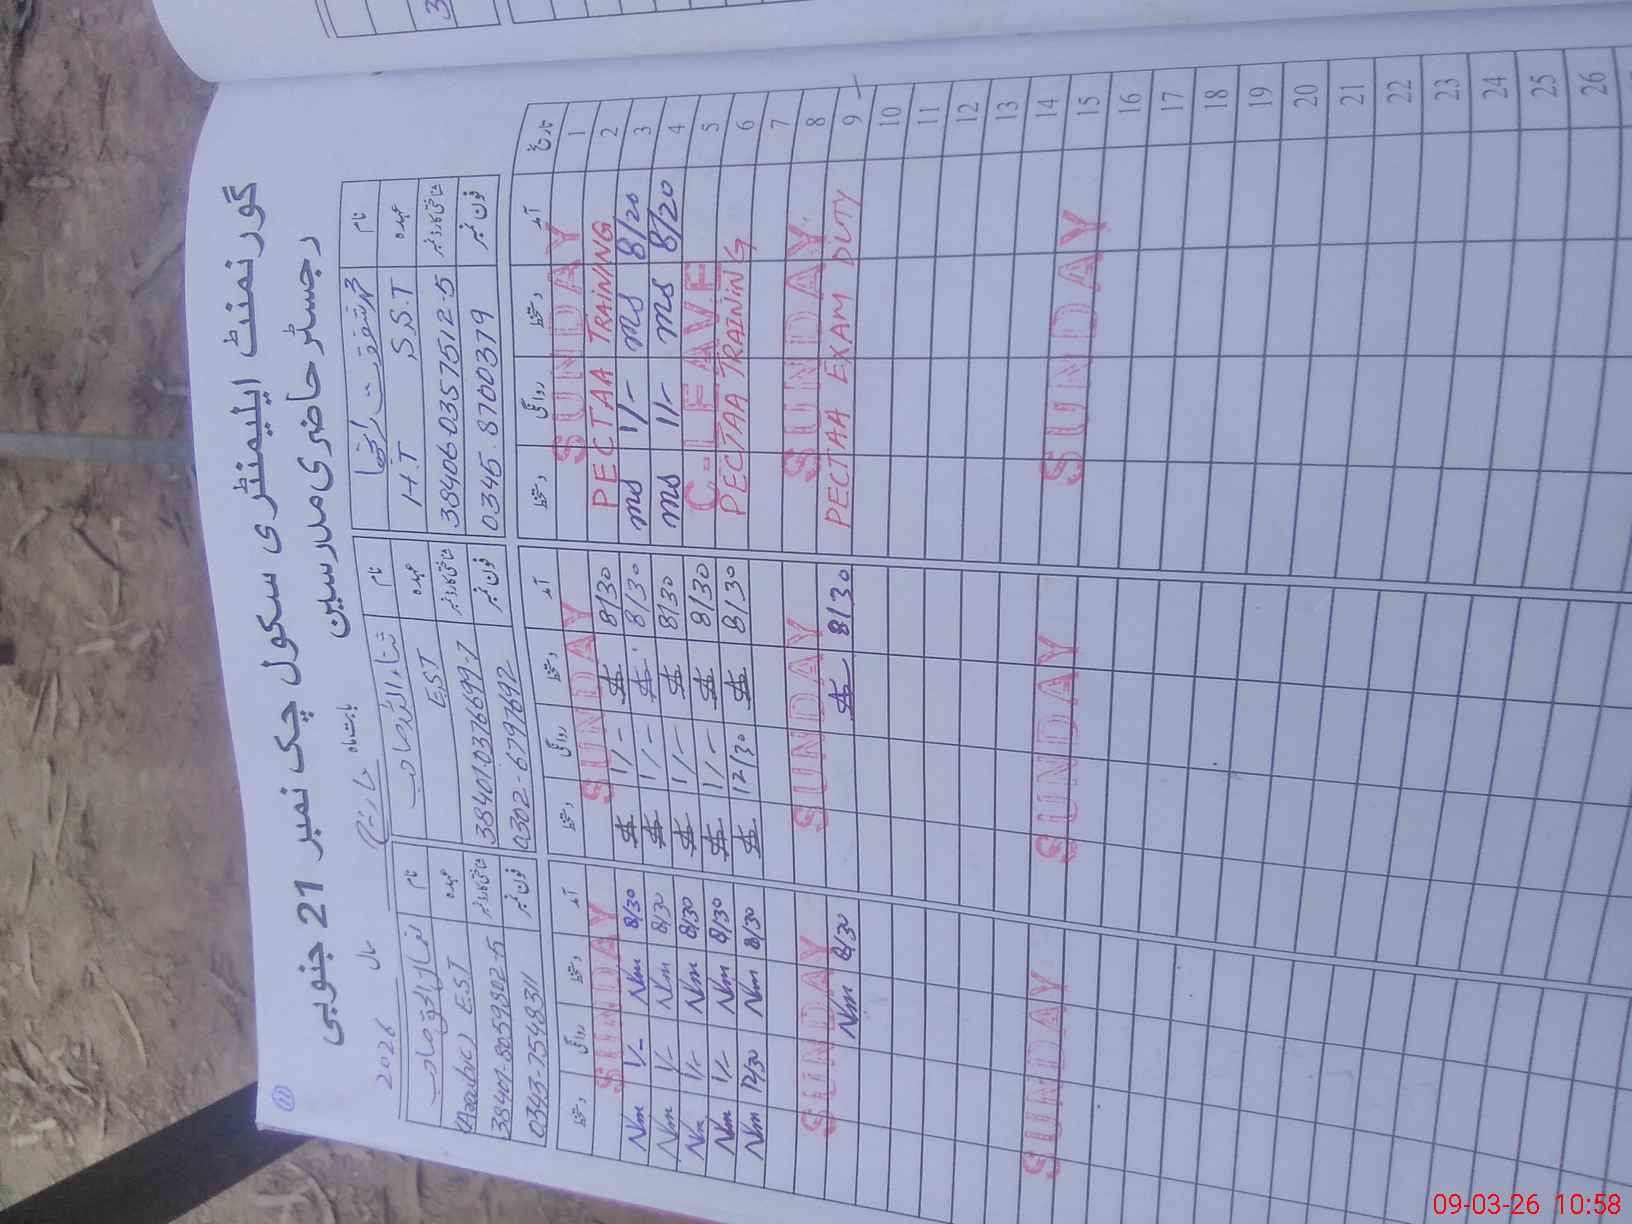 گورنمنٹ ایلیمنٹری سکول چک نمبر 21 جنوبی
رجسٹر حاضری مدرسین
11
بابت ماہ مارچ سال 2026
نام
عہدہ H.T S.S.T
شناختی کارڈ نمبر 38406-0357512-5
فون نمبر 0345-8700379
نام ثناء اللہ صاحب
عہدہ E.S.T
شناختی کارڈ نمبر 38401-0376699-7
فون نمبر 0302-6797692
نام
عہدہ (Arabic) E.S.T
شناختی کارڈ نمبر 38401-8059802-5
فون نمبر 0343-7548311
تاریخ آمد دستخط روانگی دستخط آمد دستخط روانگی دستخط آمد دستخط روانگی دستخط
1 SUNDAY SUNDAY SUNDAY
2 PECTAA TRAINING 8/30 1/- 8/30 Nm 1/- Nm
3 8/20 ms 1/- ms 8/30 1/- 8/30 Nm 1/- Nm
4 8/20 ms 1/- ms 8/30 1/- 8/30 Nm 1/- Nm
5 C-LEAVE 8/30 1/- 8/30 Nm 1/- Nm
6 PECTAA TRAINING 8/30 12/30 8/30 Nm 12/30 Nm
7
8 SUNDAY SUNDAY SUNDAY
9 PECTAA EXAM DUTY 8/30 8/30 Nm
10
11
12
13
14
15 SUNDAY SUNDAY SUNDAY
16
17
18
19
20
21
22
23
24
25
26
3
09-03-26 10:58